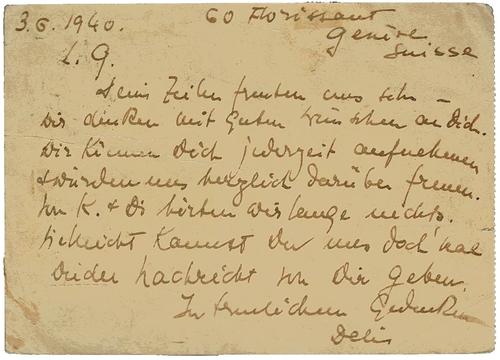 3.6.1940. 60 Florissant
Genève
Suisse
L. G.
Deine Zeilen freuten uns sehr –
Wir denken mit guten Wünschen an Dich.
Wir können Dich jederzeit aufnehmen
+ würden uns herzlich darüber freuen.
Von K. + Di hörten wir lange nichts.
Vielleicht kannst Du uns doch mal
wieder Nachricht von Dir geben.
In treulichem Gedenken